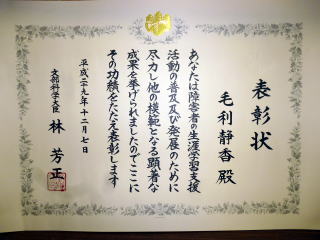 表彰状
毛利静香 殿
あなたは障害者の生涯学習支援
活動の普及及び発展のために
尽力し他の模範となる顕著な
成果を挙げられましたのでここに
その功績をたたえ表彰します
平成二十九年十二月七日
文部科学大臣 林 芳正